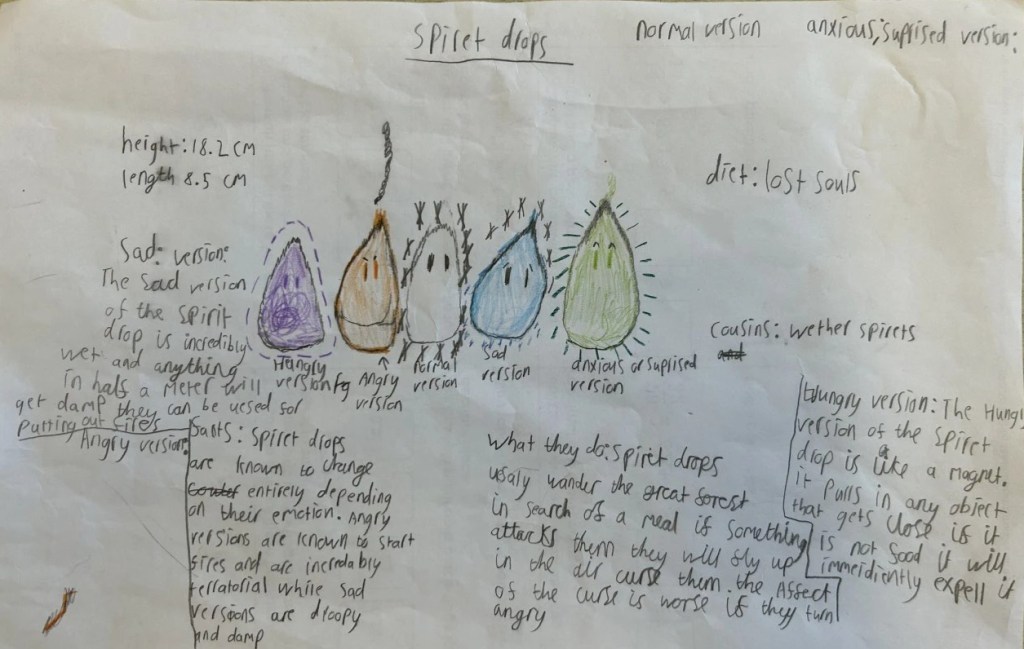 Spiret drops
normal version
anxious, suprised version:
height: 18.2 cm
length 8.5 cm
diet: lost souls
Sad version:
The sad version
of the spirit
drop is incredibly
wet and anything
in half a meter will
get damp they can be uesed for
putting out fires
Angry version:
Hungry
version
Angry
version
normal
version
Sad
version
anxious or suprised
version
cousins: wether spirets
facts: Spiret drops
are known to change
entirely depending
on their emotion. Angry
versions are known to start
fires and are incredably
terratorial while sad
versions are droopy
and damp
what they do: Spiret drops
usaly wander the great forest
in search of a meal if something
attacks them they will fly up
in the air curse them. the affect
of the curse is worse if they turn
angry
Hungry version: The Hungry
version of the Spiret
drop is like a magnet.
it pulls in any object
that gets close if it
is not food it will
immeidiently expell it